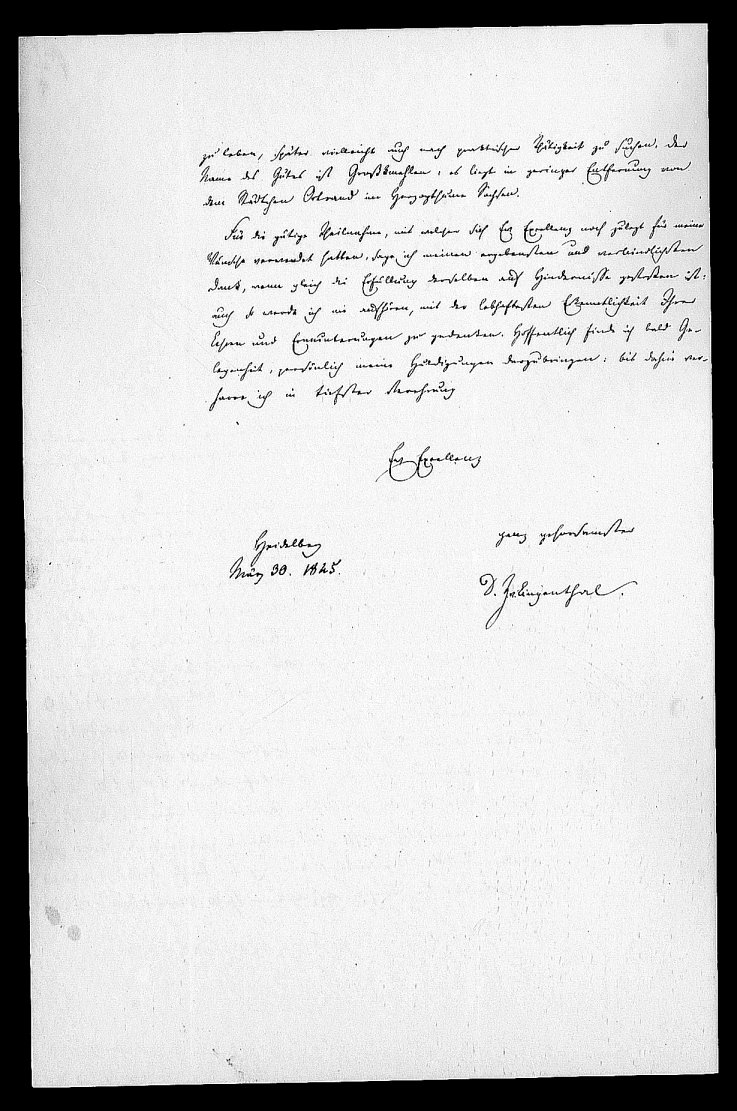 zu leben, später vielleicht auch nach praktischer Thätigkeit zu suchen. Der
Name des Gutes ist Großkmehlen, es liegt in geringer Entfernung von
dem Städtchen Ortrand im Herzogthume Sachsen.
Für die gütige Theilnahme, mit welcher sich Ew Excellenz noch zuletzt für meine
Wünsche verwendet hatten, sage ich meinen ergebensten und verbindlichsten
Dank, wenn gleich die Erfüllung derselben auf Hindernisse gestoßen ist:
auch so werde ich nie aufhören, mit der lebhaftesten Erkenntlichkeit Ihrer
Lehren und Ermunterungen zu gedenken. Hoffentlich finde ich bald Ge-
legenheit, persönlich meine Huldigungen darzubringen: bis dahin ver-
harre ich in tiefster Verehrung
Ew Excellenz
ganz gehorsamster
Heidelberg
März 30. 1845.
D. Zv.Lingenthal.